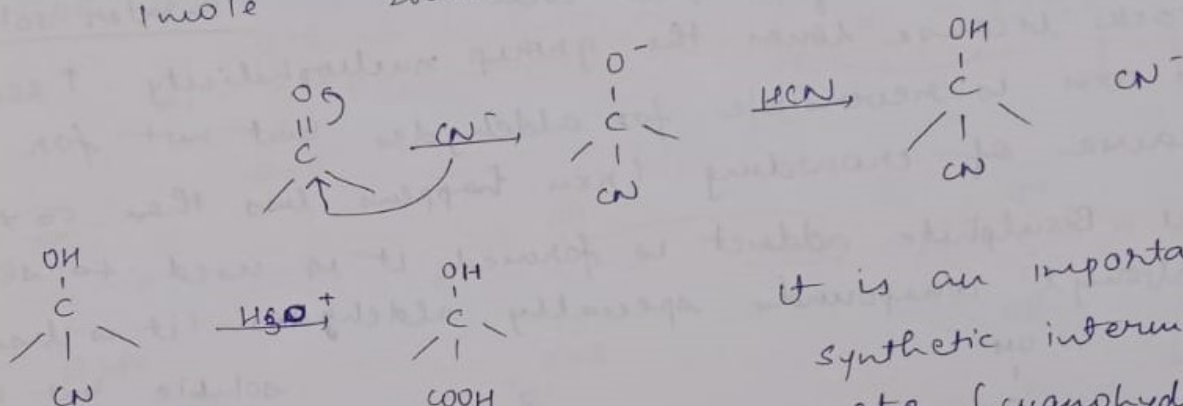 1 mole
O
||
C
CN⁻
O⁻
C
CN
HCN
OH
C
CN
CN⁻
OH
C
CN
H3O⁺
OH
C
COOH
it is an importa
synthetic interm
(cyanohyd